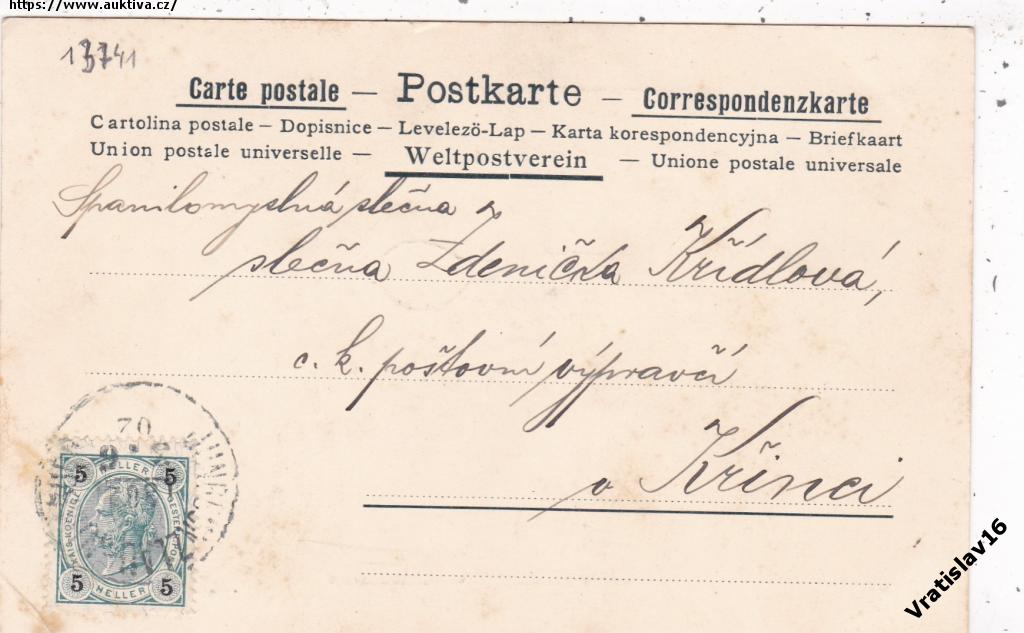 https://www.auktiva.cz/
Carte postale — Postkarte — Correspondenzkarte
Cartolina postale — Dopisnice — Levelezö-Lap — Karta korespondencyjna — Briefkaart
Union postale universelle — Weltpostverein — Unione postale universale
Spanilomyslná slečna
slečna Zdenička Křídlová,
c. k. poštovní výpravčí
v Křinci
70
5 HELLER 5
5 HELLER 5
Vratislav16